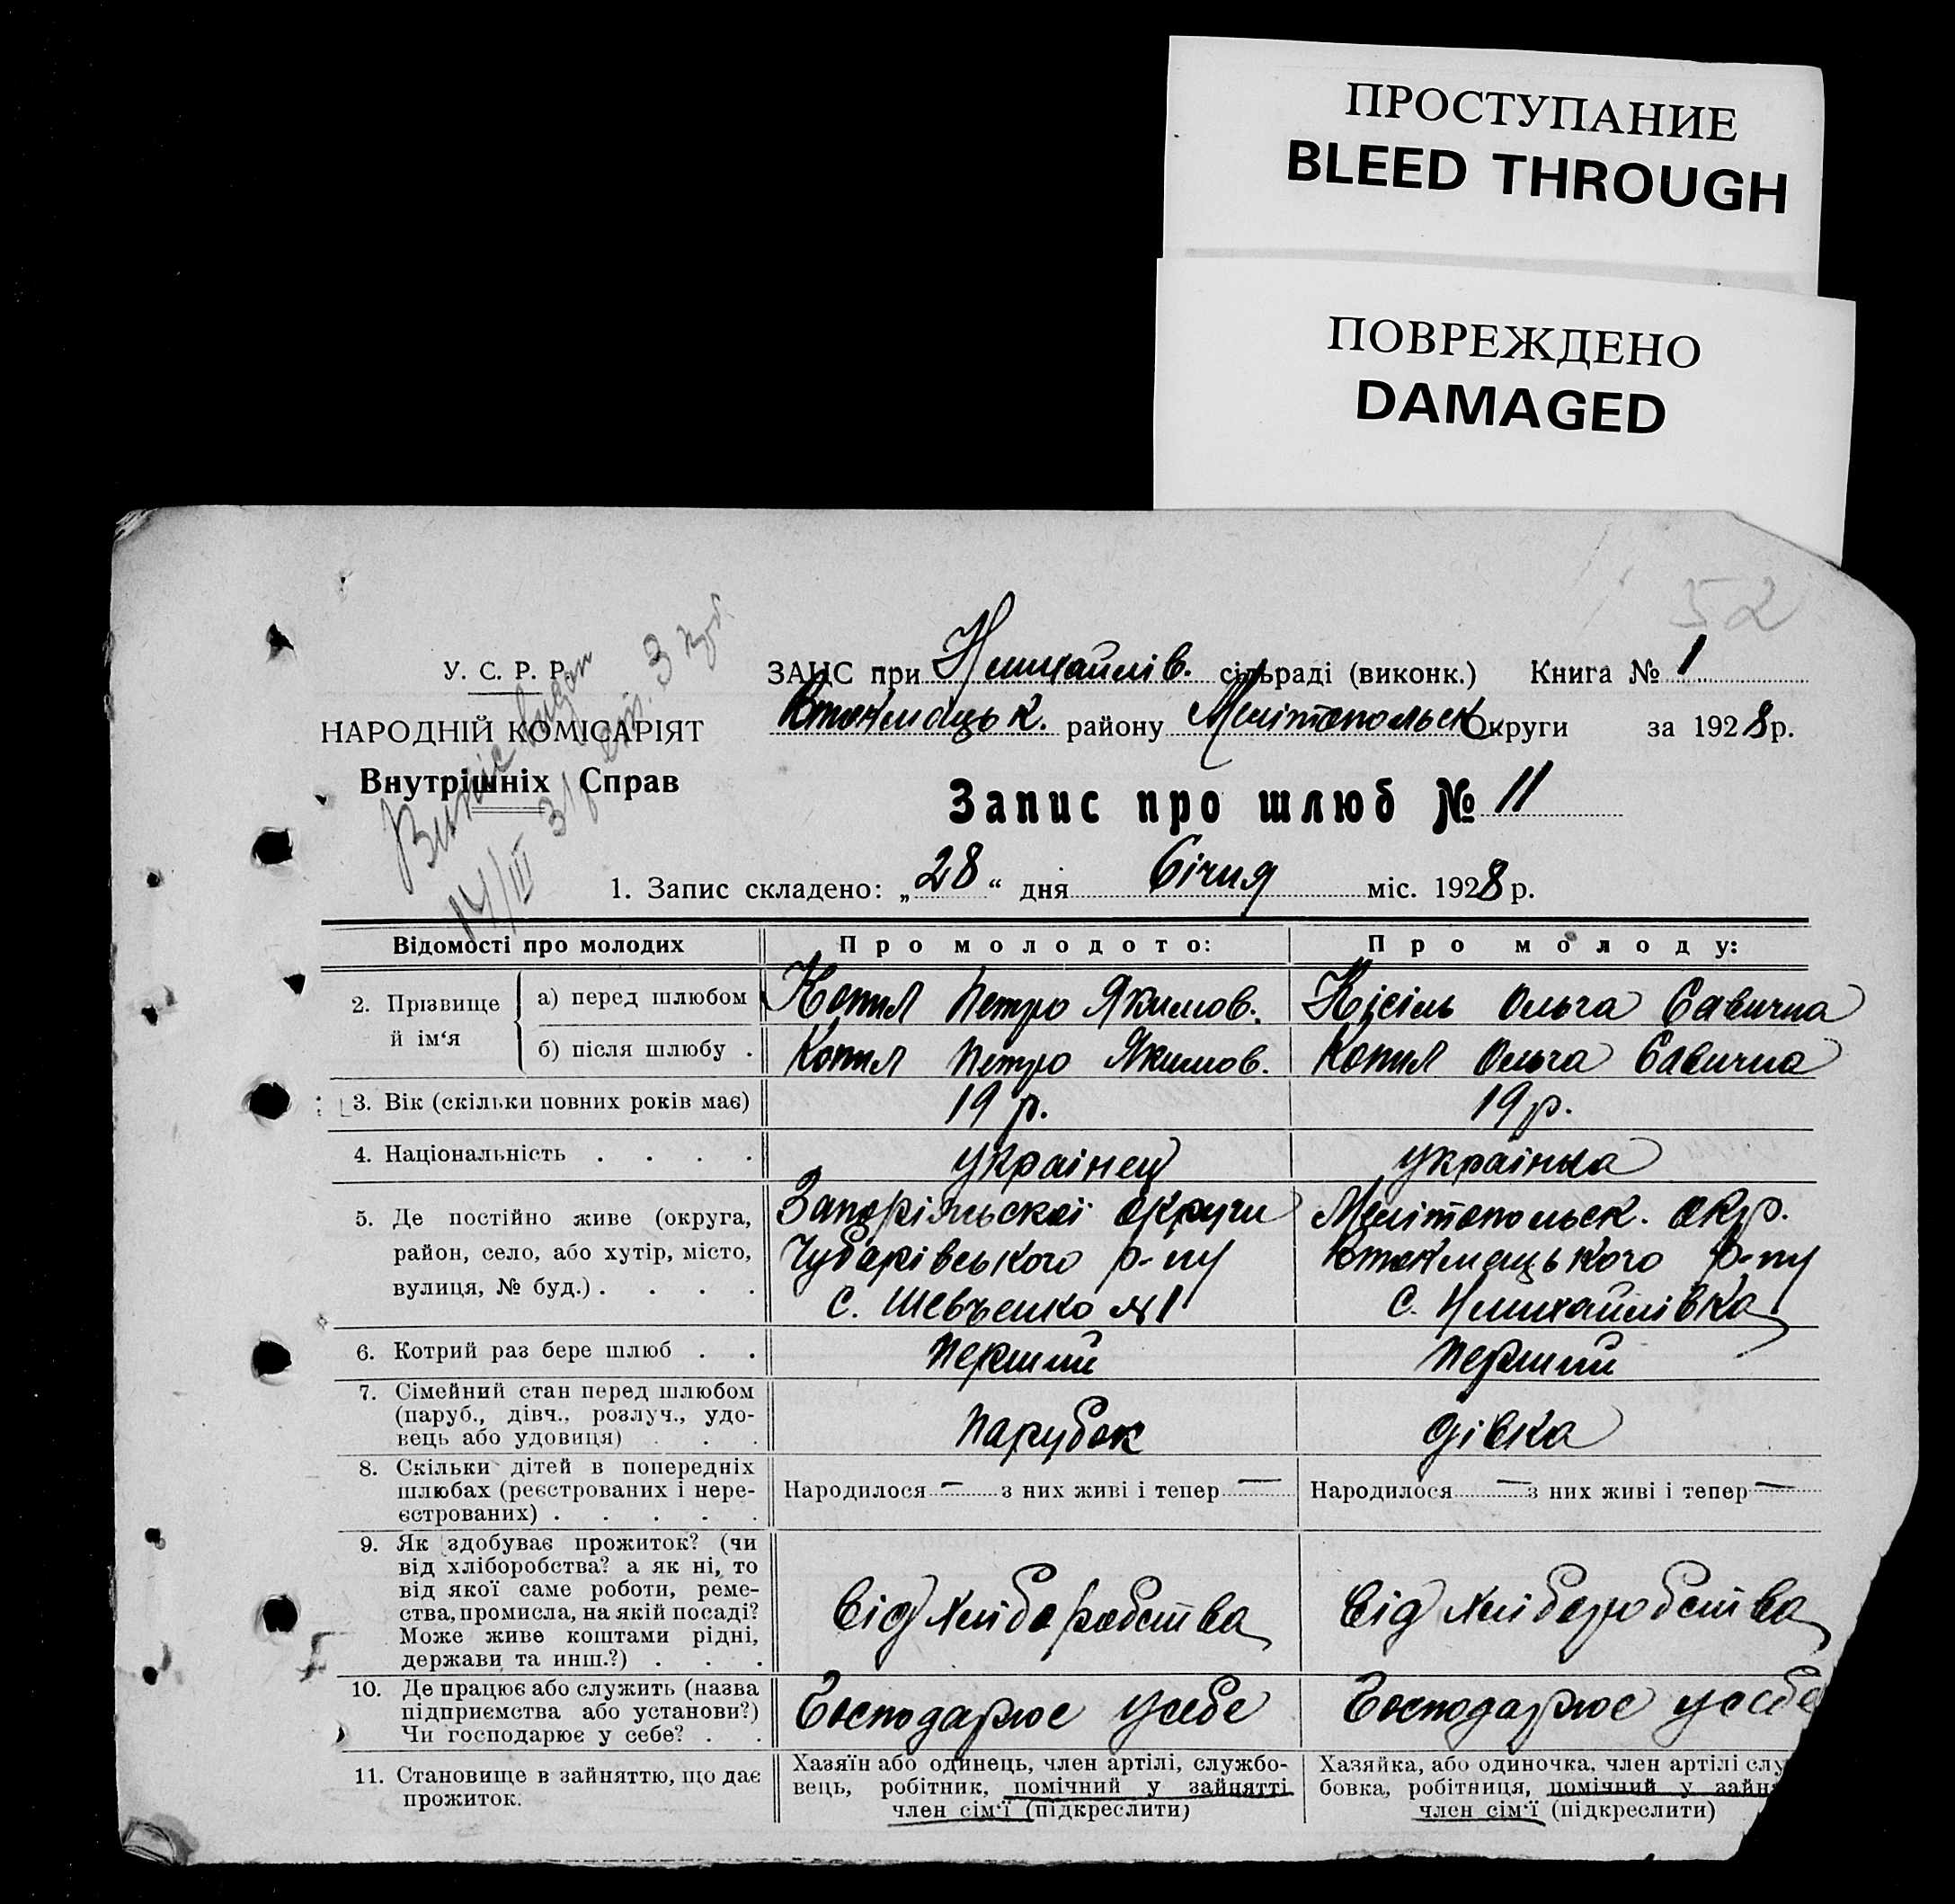 ПРОСТУПАНИЕ
BLEED THROUGH
ПОВРЕЖДЕНО
DAMAGED
52
У. С. Р. Р.
НАРОДНІЙ КОМІСАРІЯТ
Внутрішніх Справ
14/III 31
ЗАЦС при Нмихайлів. сільраді (виконк.) Книга № 1
Втокмацьк. району Мелітопольськ Округи за 1928 р.
Запис про шлюб № 11
1. Запис складено: „28“ дня Січня міс. 1928 р.
Відомості про молодих Про молодого: Про молоду:
2. Прізвище й ім‘я а) перед шлюбом Копил Петро Якимов. Кісіль Ольга Савична
б) після шлюбу . Копил Петро Якимов. Копил Ольга Савична
3. Вік (скільки повних років має) 19 р. 19 р.
4. Національність . . . . українец українка
5. Де постійно живе (округа, Запоріжьскої округи Мелітопольск. окр.
район, село, або хутір, місто, Чубарівського р-ну Втокмацького р-ну
вулиця, № буд.) . . . . с. Шевченко №1 с. Нмихайлівка
6. Котрий раз бере шлюб . . Перший Перший
7. Сімейний стан перед шлюбом
(паруб., дівч., розлуч., удо-
вець або удовиця) . . . Парубок дівка
8. Скільки дітей в попередніх
шлюбах (реєстрованих і нере- Народилося — з них живі і тепер — Народилося — з них живі і тепер —
єстрованих) . . . . .
9. Як здобуває прожиток? (чи
від хліборобства? а як ні, то
від якої саме роботи, реме-
ства, промисла, на якій посаді? Від хліборобства Від хліборобства
Може живе коштами рідні,
держави та инш.?) . . .
10. Де працює або служить (назва
підприємства або установи?) Господарює усебе Господарює усебе
Чи господарює у себе? . .
11. Становище в зайняттю, що дає
прожиток.
Хазяїн або одинець, член артілі, службо-
вець, робітник, помічний у зайнятті
член сім‘ї (підкреслити)
Хазяйка, або одиночка, член артілі слу
бовка, робітниця, помічний у зайн
член сім‘ї (підкреслити)